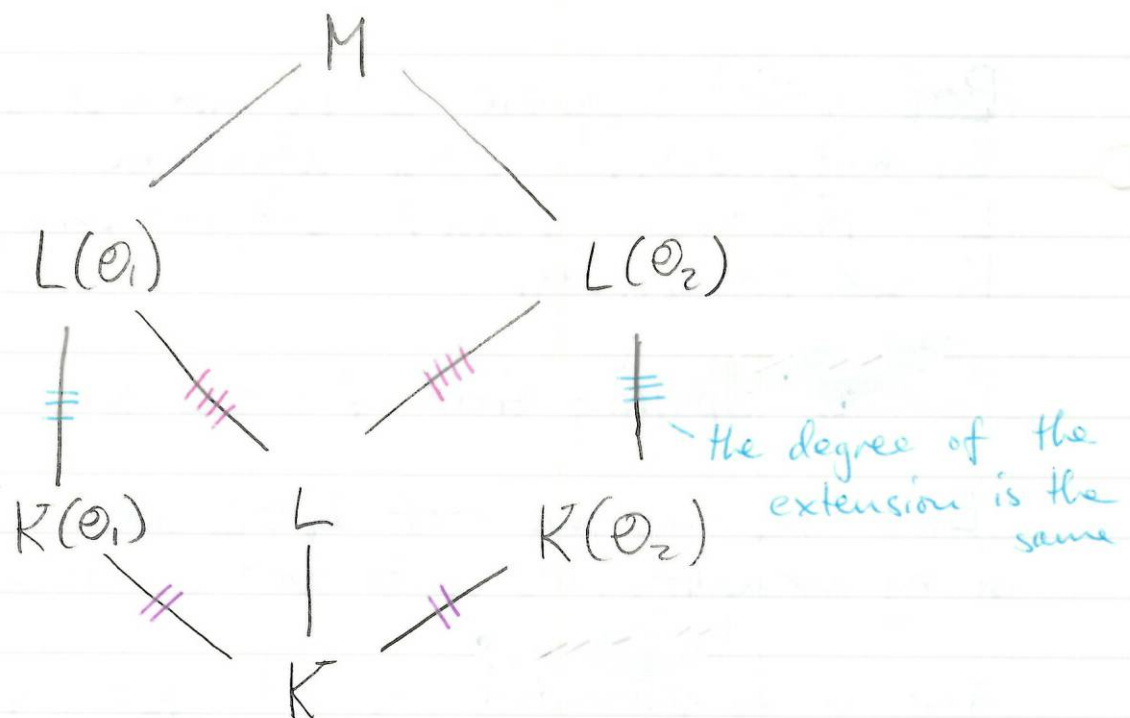 M
L(Θ₁)
L(Θ₂)
the degree of the
extension is the
same
K(Θ₁)
L
K(Θ₂)
K